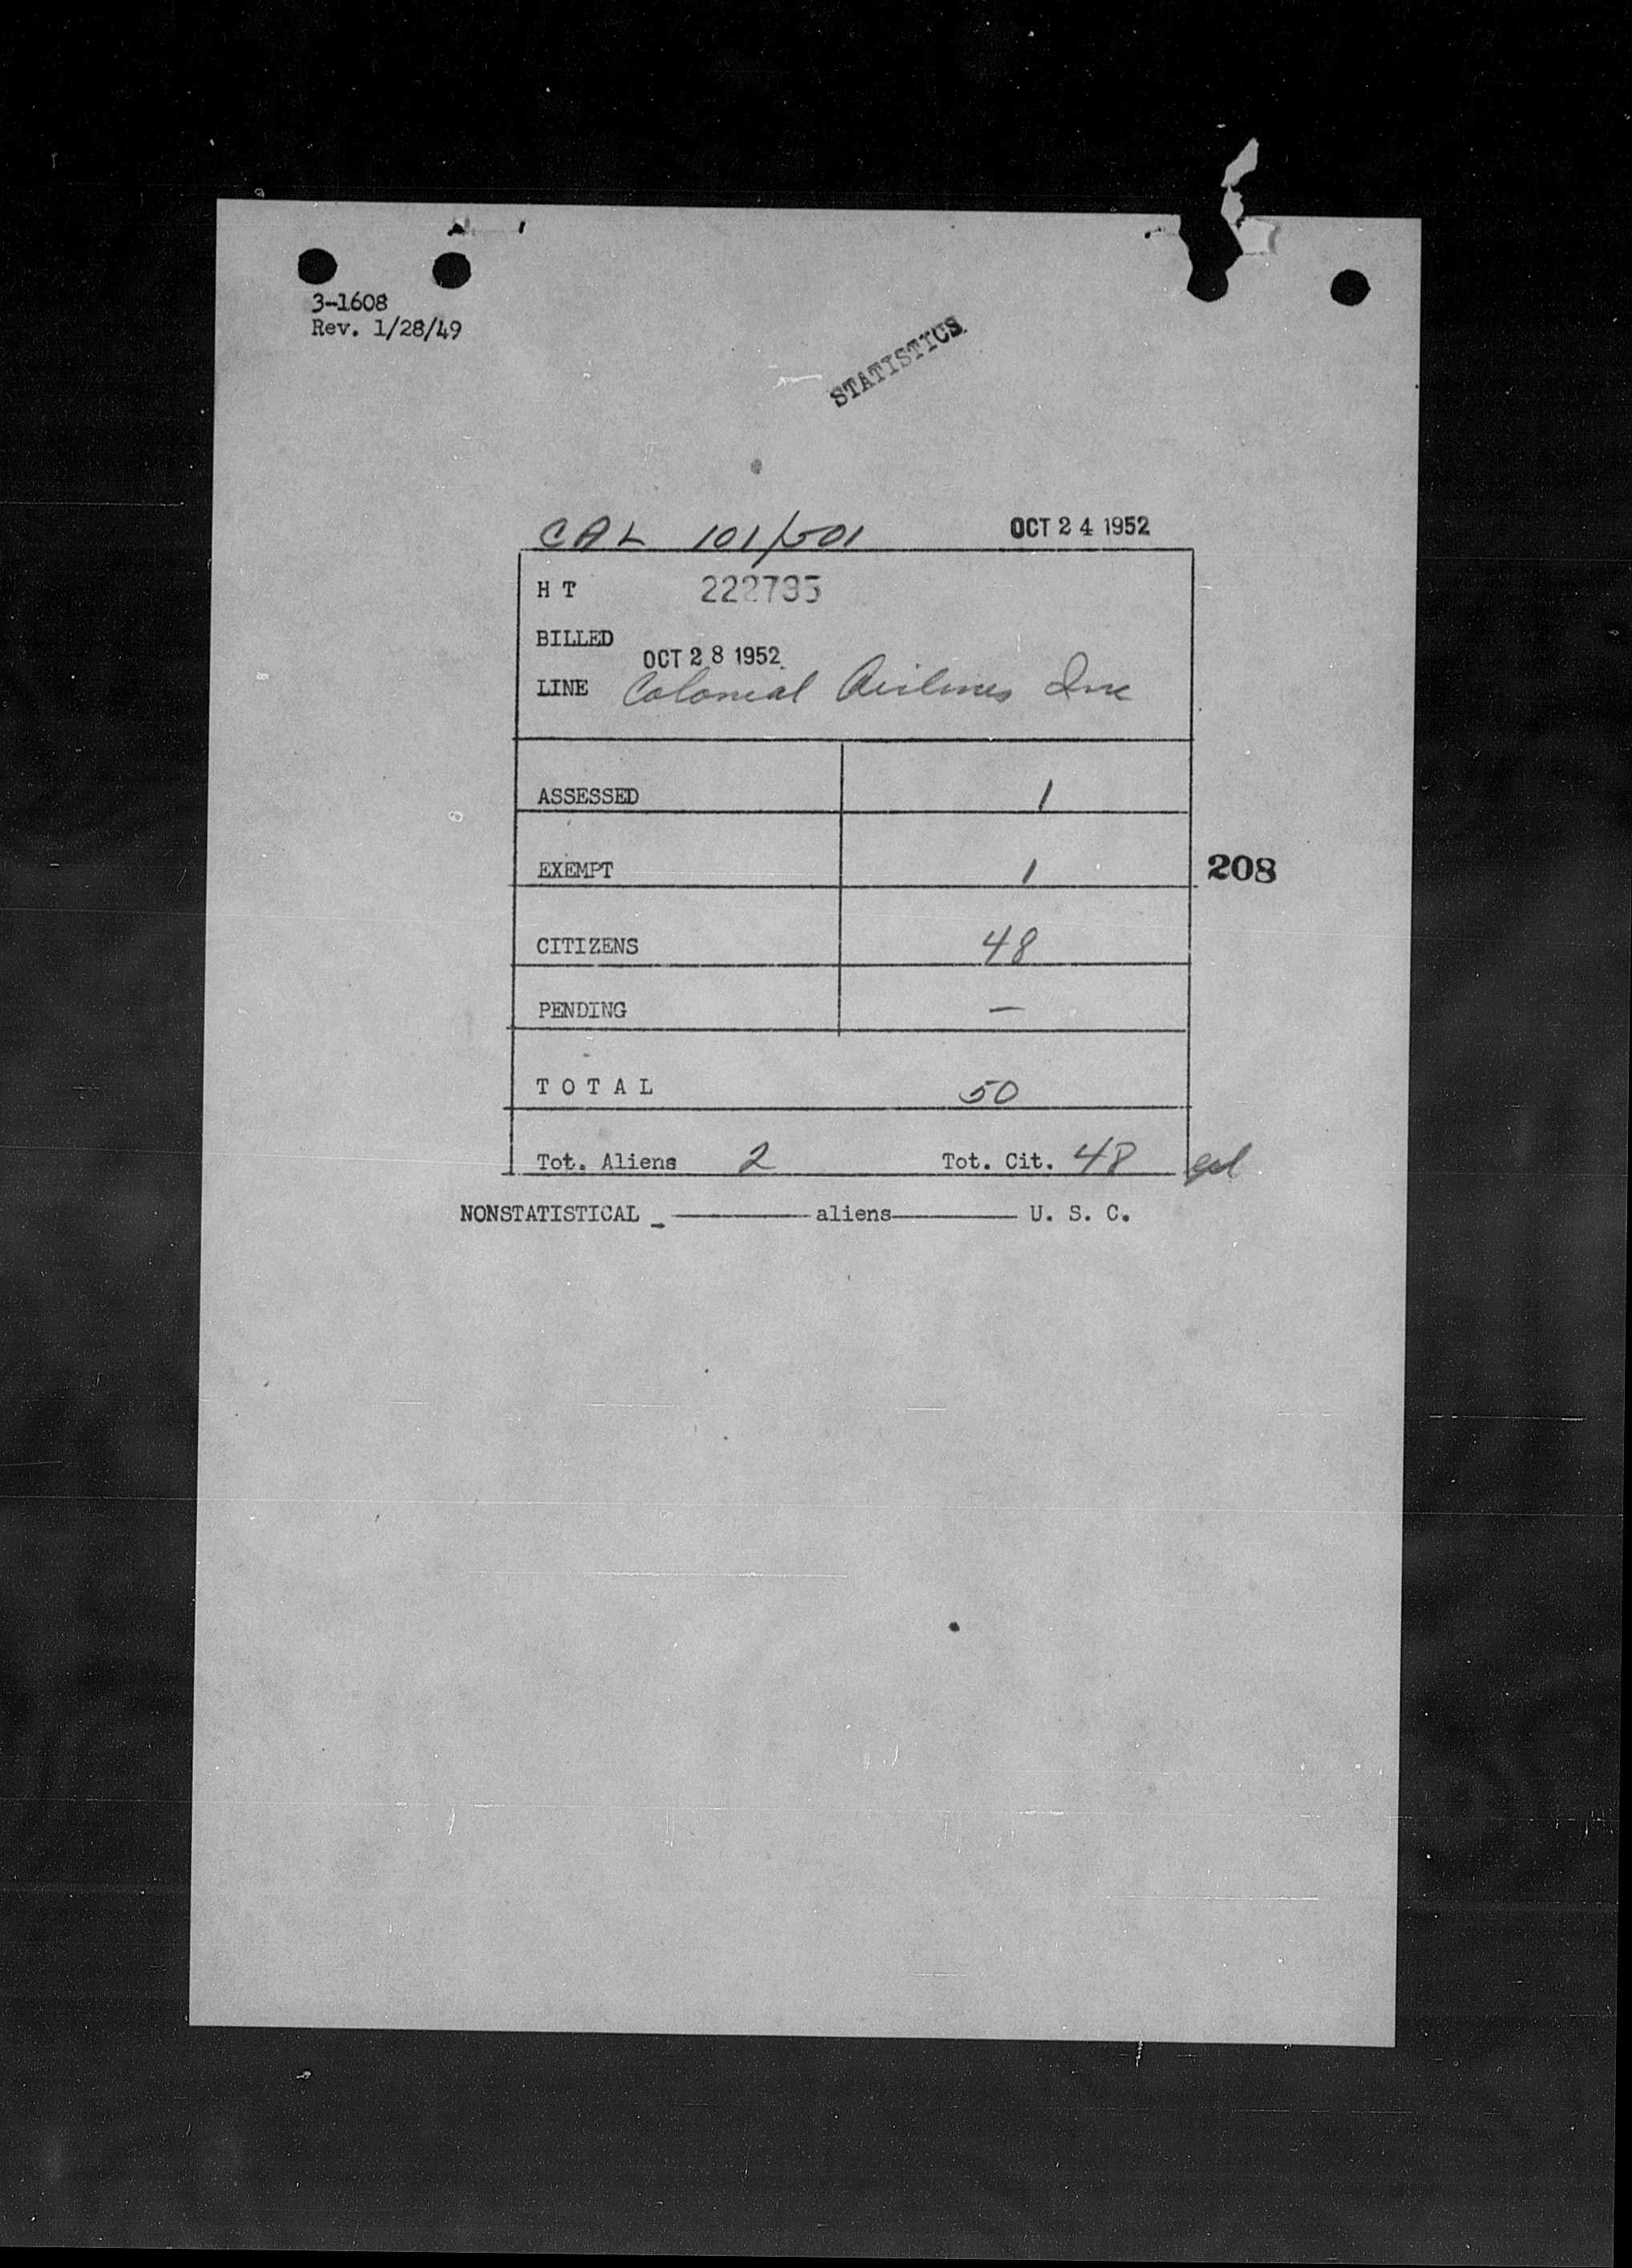 3-1608
Rev. 1/28/49
STATISTICS
CAL 101/501 OCT 24 1952
H T 222795
BILLED
OCT 28 1952
LINE Colonial Airlines Inc
ASSESSED 1
EXEMPT 1
208
CITIZENS 48
PENDING —
T O T A L 50
Tot. Aliens 2 Tot. Cit. 48
NONSTATISTICAL _ ——— aliens ——— U. S. C.